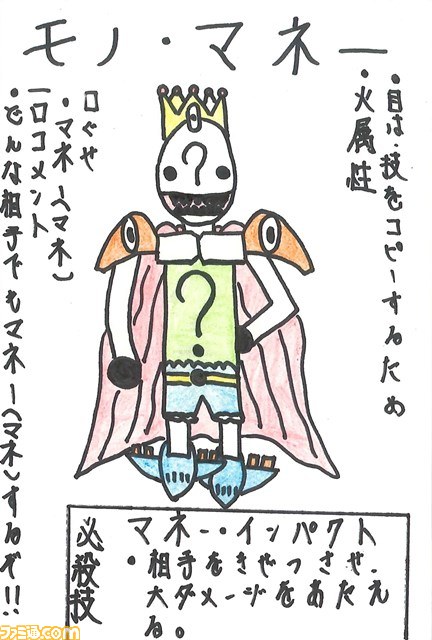 モノ・マネー
・目は、技をコピーするため
・火属性
口ぐせ
・マネー(マネ)
一口コメント
・どんな相手でもマネー(マネ)するぞ!!
?
?
必殺技
マネー・インパクト
・相手をきぜつさせ、
大ダメージをあたえ
る。
ファミ通.com